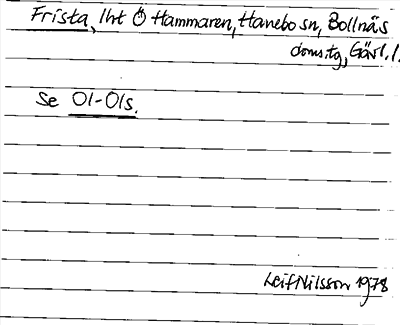 Frista, lht Ö Hammaren, Hanebo sn, Bollnäs
domstg, Gävl. l.
Se Ol-Ols.
Leif Nilsson 1978